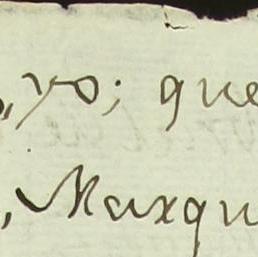 , yo; que
, Marqu